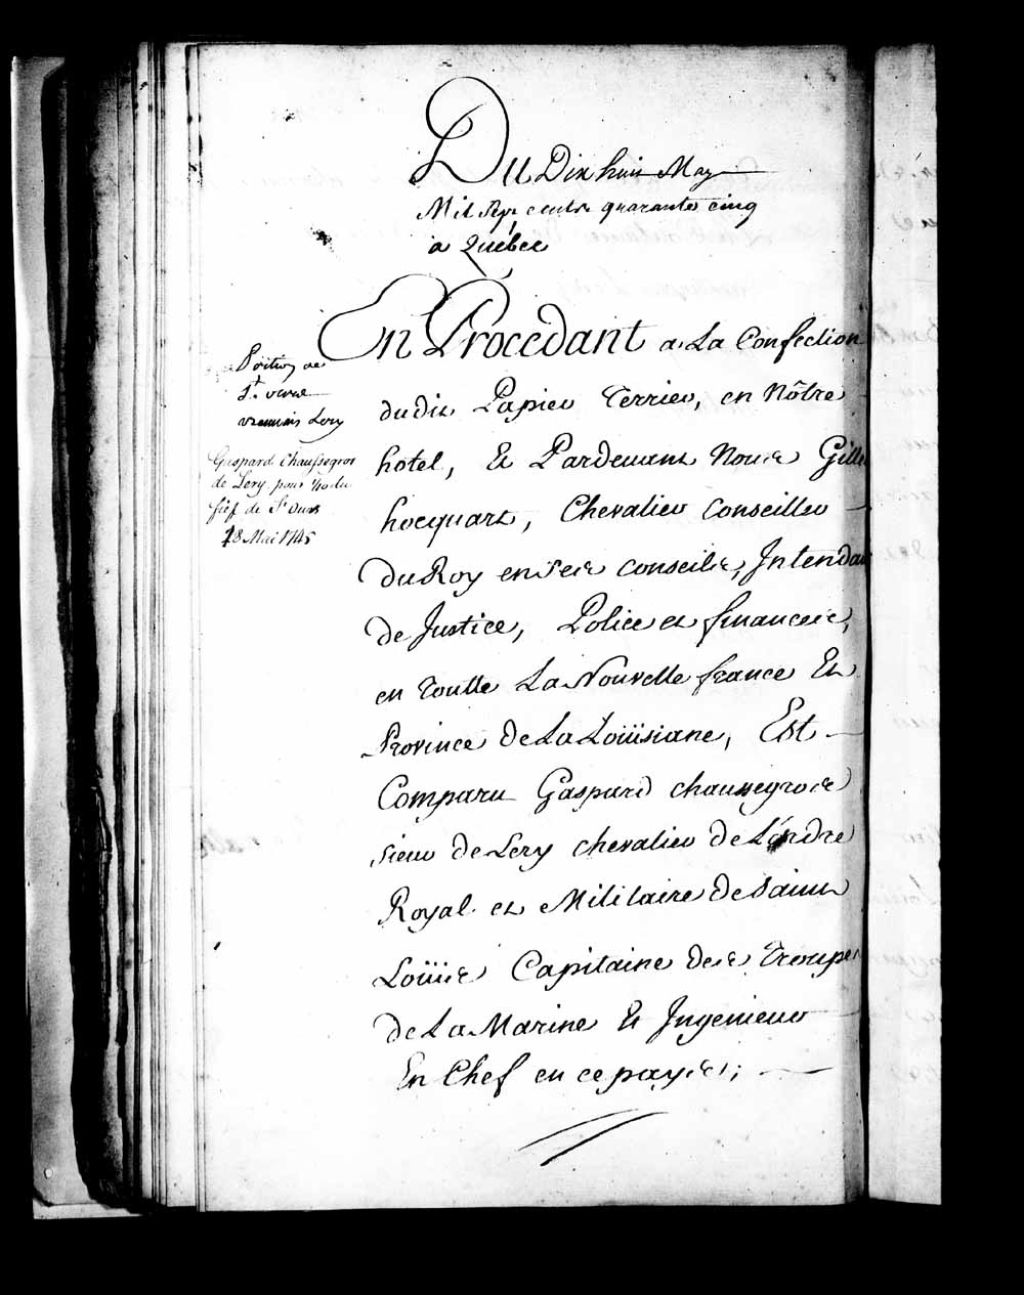 Du Dix huit May
Mil Sept cents quarante cinq
a Québec
En Procedant a La Confection
dudit Papier Terrier, en Nôtre
hotel, Et Pardevant Nous Gille
hocquart, Chevalier Conseiller
Du Roy en ses conseils, Intendan
de Justice, Police et finances,
en Toutte La Nouvelle france Et
Province de La Loüisiane, Est
Comparu Gaspard chaussegros
sieur de Lery chevalier de L'ordre
Royal et Militaire de Saint
Loüis Capitaine des Troupes
de La Marine Et Ingenieur
En Chef en ce pays;
de
Lery
Gaspard Chaussegros
de Lery pour du
fief de St Ours
18 Mai 1745